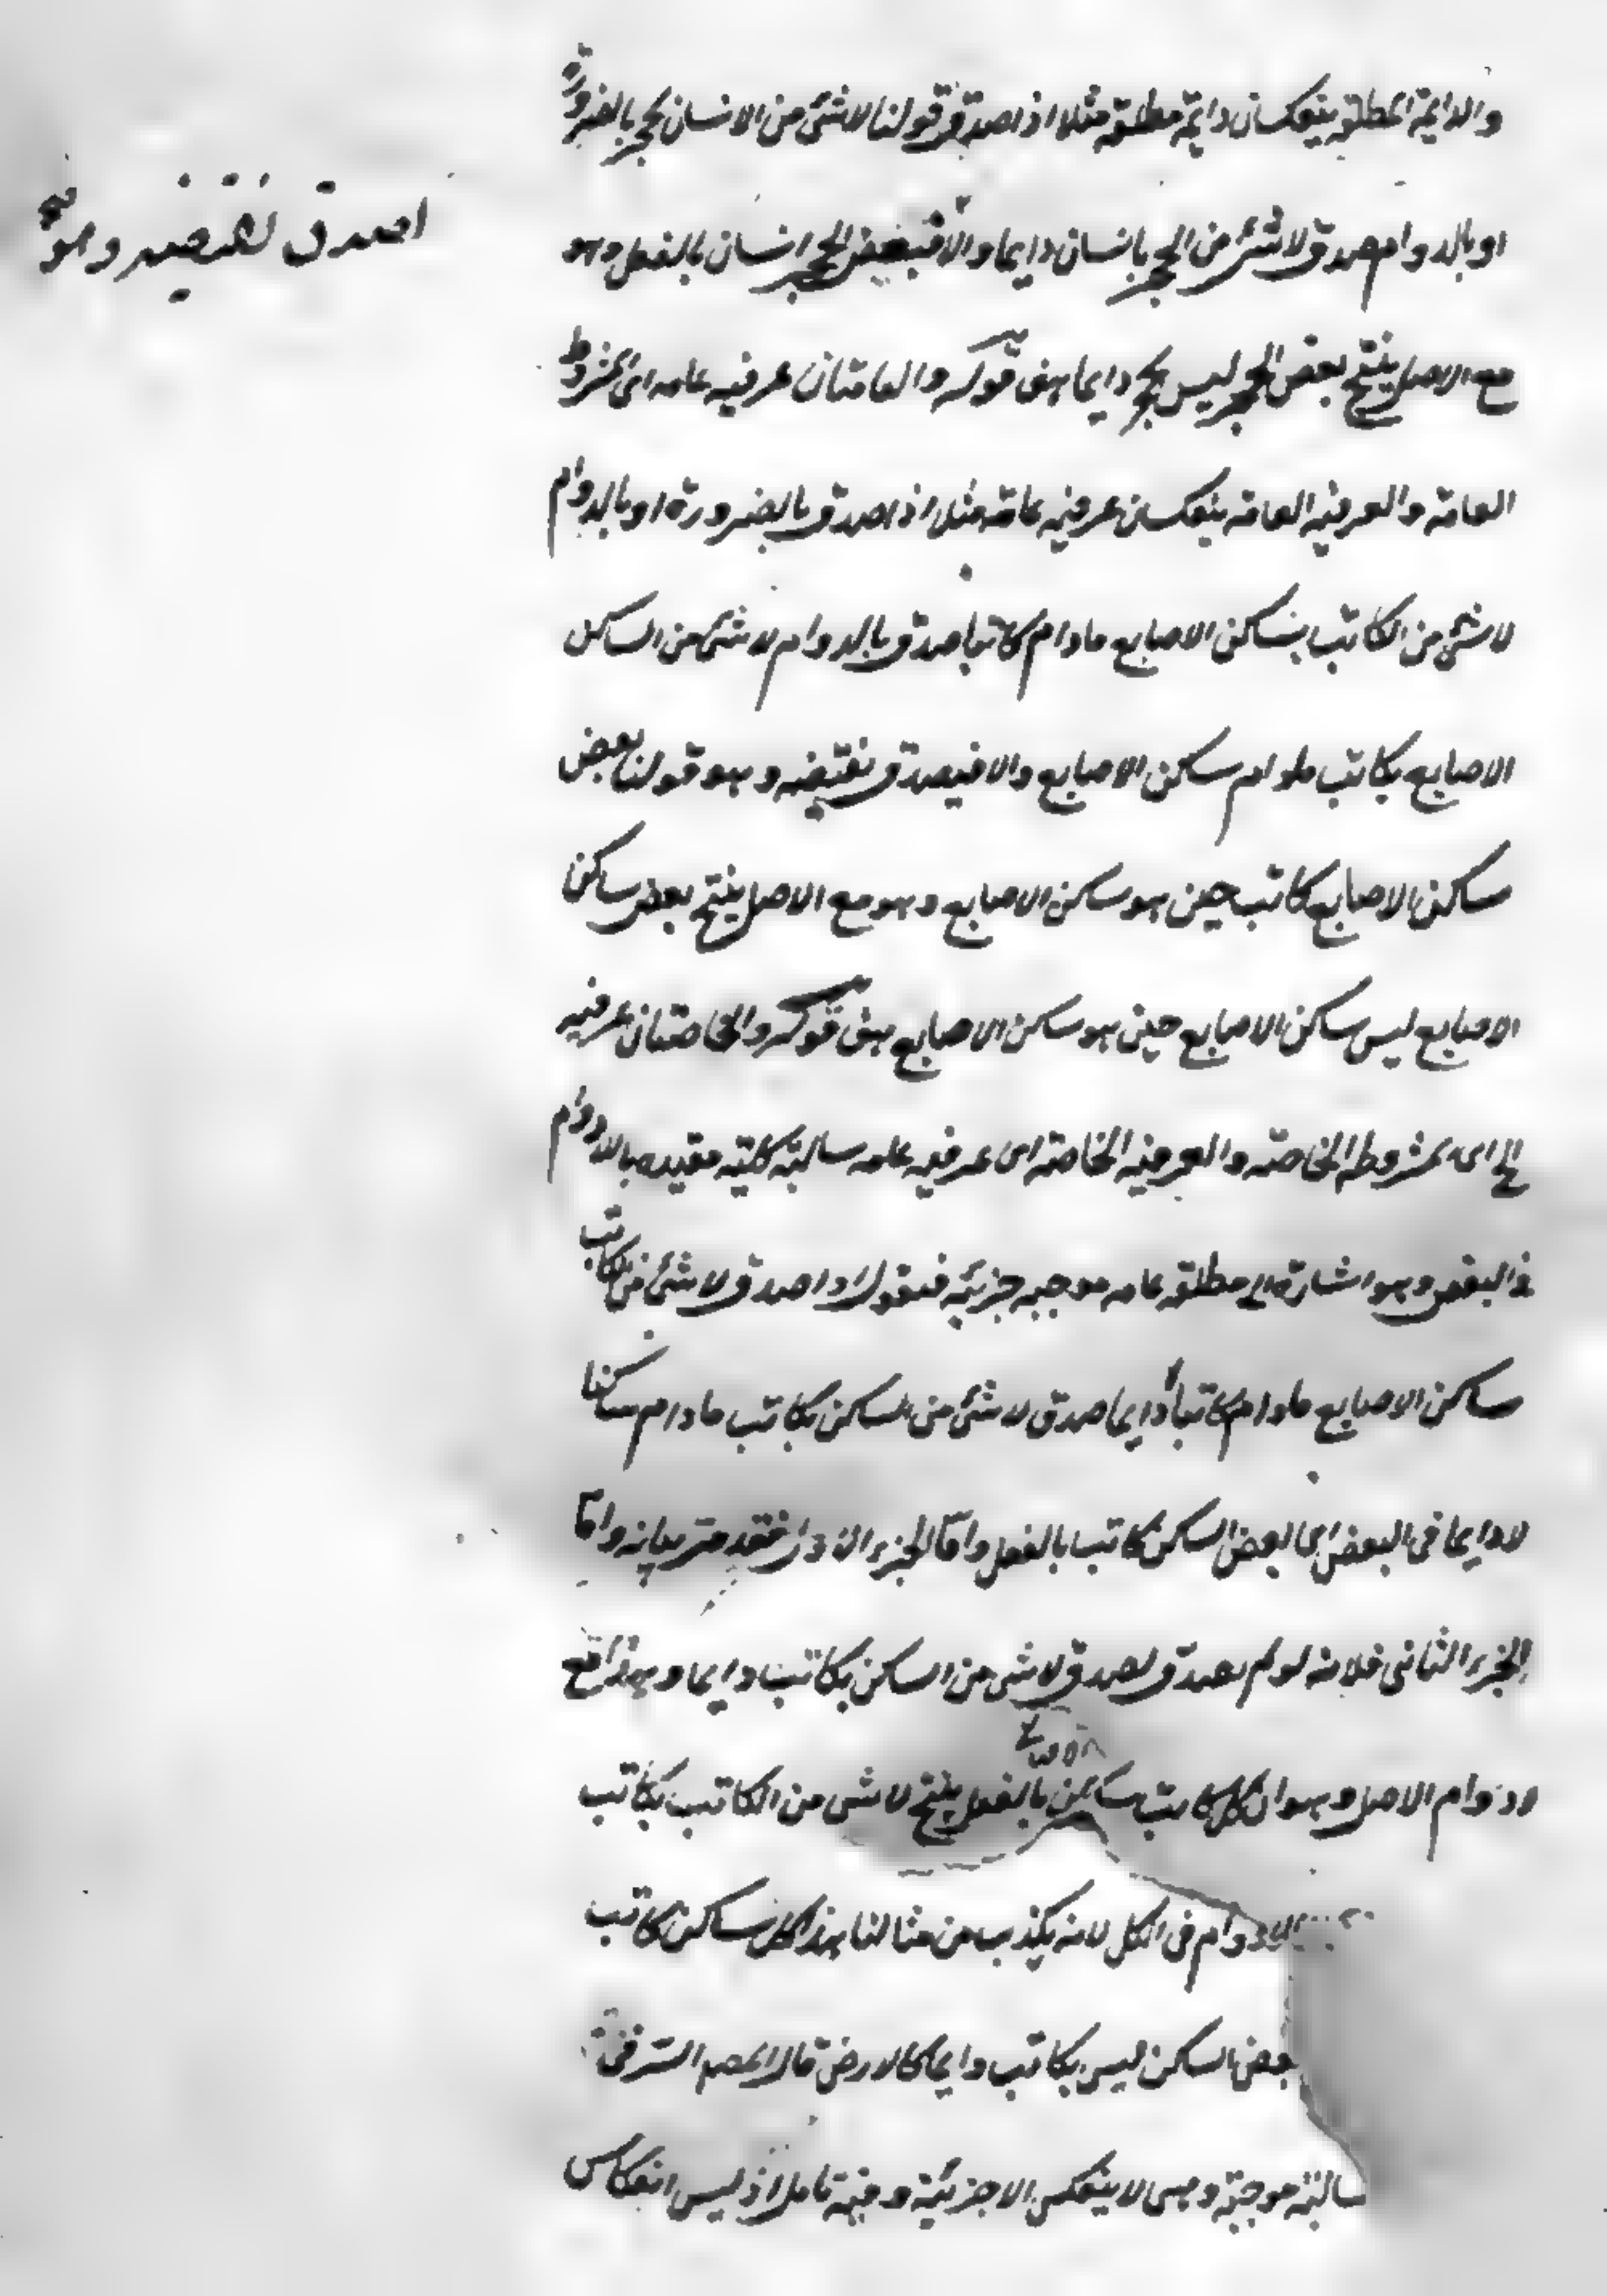 والدایمة المطلقة ینعکسان دایمة مطلقة مثلا اذا صدق قولنا لا شئ من الانسان بحجر بالضرورة
او بالدوام صدق لا شئ من الحجر بانسان دایما والا فبعض الحجر انسان بالفعل وهو
اصدق نقیضه وهو
مع الاصل ینتج بعض الحجر لیس بحجر دایما هف قوله والعامتان عرفیه عامه ای المشروطة
العامة والعرفیه العامة ینعکسان عرفیه عامة مثلا اذا صدق بالضرورة او بالدوام
لا شئ من الکاتب بساکن الاصابع مادام کاتبا صدق بالدوام لا شئ من الساکن
الاصابع بکاتب مادام ساکن الاصابع والا فیصدق نقیضه وهو قولنا بعض
ساکن الاصابع کاتب حین هو ساکن الاصابع وهو مع الاصل ینتج بعض ساکن
الاصابع لیس ساکن الاصابع حین هو ساکن الاصابع هف قوله والخاصتان عرفیه
الخ ای المشروطه الخاصة والعرفیه الخاصة ای عرفیه عامه سالبة کلیة مقیده باللادوام
فی البعض وهو اشارة الی مطلقه عامه موجبه جزئیه فنقول اذا صدق لا شئ من الکاتب
ساکن الاصابع مادام کاتبا لا دایما صدق لا شئ من الساکن بکاتب مادام ساکنا
لا دایما فی البعض ای بعض الساکن کاتب بالفعل واما الجزء الاول فقد مر بیانه واما
الجزء الثانی فلانه لو لم یصدق لصدق لا شی من الساکن بکاتب دایما وهذا مع
لادوام الاصل وهو ان کل کاتب ساکن الاصابع بالفعل ینتج لا شی من الکاتب بکاتب
اللادوام فی الکل لانه یکذب من مثالنا هذا کل ساکن کاتب
بعض الساکن لیس بکاتب دایما کالارض قال المص السر فی
سالبة موجبة وهی لا ینعکس الا جزئیة وفیه تامل اذ لیس انعکاس